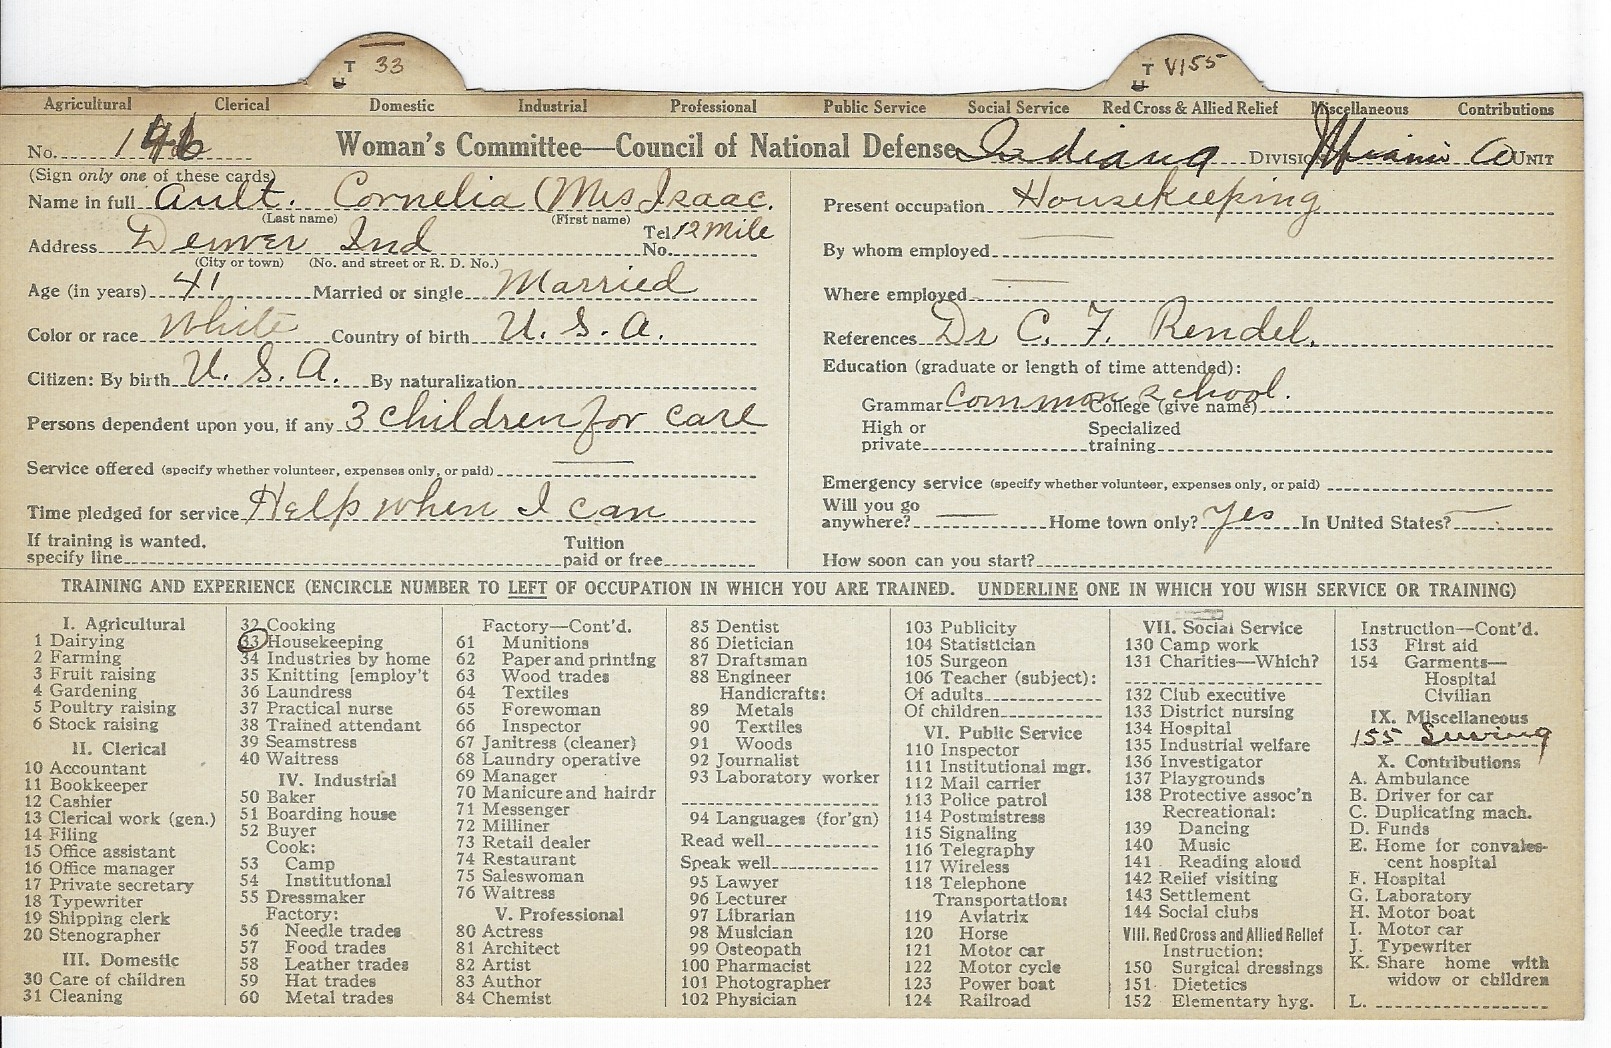 T 33
T V155
Agricultural Clerical Domestic Industrial Professional Public Service Social Service Red Cross & Allied Relief Miscellaneous Contributions
No. 146 Woman's Committee—Council of National Defense Indiana DIVISION Miami Co UNIT
(Sign only one of these cards)
Name in full Ault. Cornelia (Mrs Isaac.
(Last name) (First name)
Address Denver Ind Tel. No. 12 Mile
(City or town) (No. and street or R. D. No.)
Age (in years) 41 Married or single Married
Color or race White Country of birth U. S. A.
Citizen: By birth U. S. A. By naturalization
Persons dependent upon you, if any 3 children for care
Service offered (specify whether volunteer, expenses only, or paid) —
Time pledged for service Help when I can
If training is wanted, Tuition
specify line paid or free
Present occupation Housekeeping
By whom employed —
Where employed —
References Dr C. F. Rendel.
Education (graduate or length of time attended):
Grammar common school. College (give name)
High or Specialized
private training
Emergency service (specify whether volunteer, expenses only, or paid)
Will you go
anywhere? — Home town only? Yes In United States? —
How soon can you start?
TRAINING AND EXPERIENCE (ENCIRCLE NUMBER TO LEFT OF OCCUPATION IN WHICH YOU ARE TRAINED. UNDERLINE ONE IN WHICH YOU WISH SERVICE OR TRAINING)
I. Agricultural
1 Dairying
2 Farming
3 Fruit raising
4 Gardening
5 Poultry raising
6 Stock raising
II. Clerical
10 Accountant
11 Bookkeeper
12 Cashier
13 Clerical work (gen.)
14 Filing
15 Office assistant
16 Office manager
17 Private secretary
18 Typewriter
19 Shipping clerk
20 Stenographer
III. Domestic
30 Care of children
31 Cleaning
32 Cooking
33 Housekeeping
34 Industries by home
35 Knitting [employ't
36 Laundress
37 Practical nurse
38 Trained attendant
39 Seamstress
40 Waitress
IV. Industrial
50 Baker
51 Boarding house
52 Buyer
Cook:
53 Camp
54 Institutional
55 Dressmaker
Factory:
56 Needle trades
57 Food trades
58 Leather trades
59 Hat trades
60 Metal trades
Factory—Cont'd.
61 Munitions
62 Paper and printing
63 Wood trades
64 Textiles
65 Forewoman
66 Inspector
67 Janitress (cleaner)
68 Laundry operative
69 Manager
70 Manicure and hairdr
71 Messenger
72 Milliner
73 Retail dealer
74 Restaurant
75 Saleswoman
76 Waitress
V. Professional
80 Actress
81 Architect
82 Artist
83 Author
84 Chemist
85 Dentist
86 Dietician
87 Draftsman
88 Engineer
Handicrafts:
89 Metals
90 Textiles
91 Woods
92 Journalist
93 Laboratory worker
94 Languages (for'gn)
Read well
Speak well
95 Lawyer
96 Lecturer
97 Librarian
98 Musician
99 Osteopath
100 Pharmacist
101 Photographer
102 Physician
103 Publicity
104 Statistician
105 Surgeon
106 Teacher (subject):
Of adults
Of children
VI. Public Service
110 Inspector
111 Institutional mgr.
112 Mail carrier
113 Police patrol
114 Postmistress
115 Signaling
116 Telegraphy
117 Wireless
118 Telephone
Transportation:
119 Aviatrix
120 Horse
121 Motor car
122 Motor cycle
123 Power boat
124 Railroad
VII. Social Service
130 Camp work
131 Charities—Which?
132 Club executive
133 District nursing
134 Hospital
135 Industrial welfare
136 Investigator
137 Playgrounds
138 Protective assoc'n
Recreational:
139 Dancing
140 Music
141 Reading aloud
142 Relief visiting
143 Settlement
144 Social clubs
VIII. Red Cross and Allied Relief
Instruction:
150 Surgical dressings
151 Dietetics
152 Elementary hyg.
Instruction—Cont'd.
153 First aid
154 Garments—
Hospital
Civilian
IX. Miscellaneous
155 Sewing
X. Contributions
A. Ambulance
B. Driver for car
C. Duplicating mach.
D. Funds
E. Home for convales-
cent hospital
F. Hospital
G. Laboratory
H. Motor boat
I. Motor car
J. Typewriter
K. Share home with
widow or children
L.